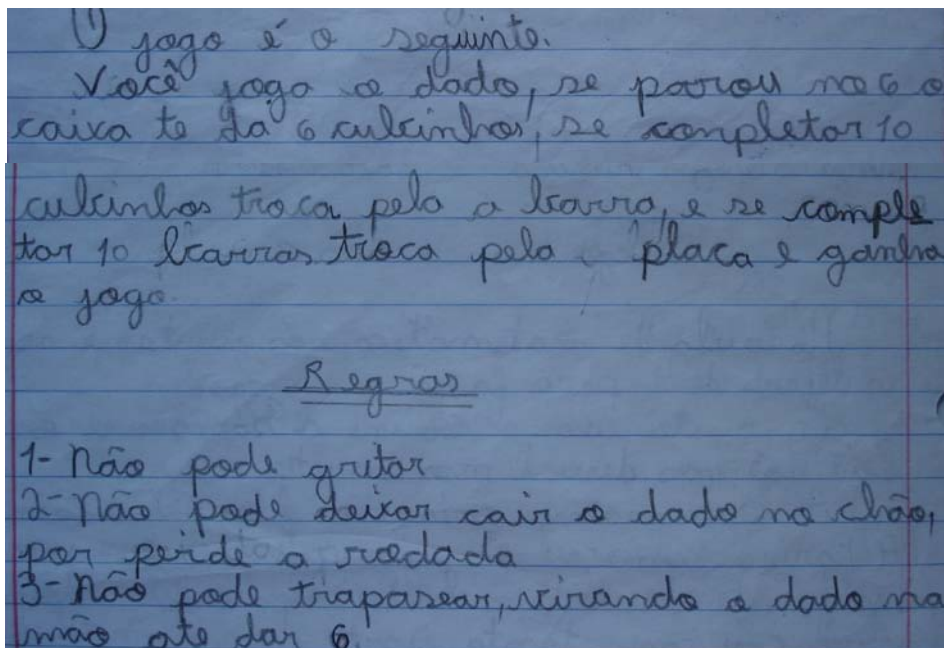 O jogo é o seguinte.
Você joga o dado, se parou no 6 o
caixa te da 6 culcinhos, se completar 10
culcinhos troca pela a barra, e se comple
tar 10 barras troca pela placa e ganha
o jogo.
Regras
1- Não pode gritar
2- Não pode deixar cair o dado no chão,
por perde a rodada
3- Não pode trapasear, virando o dado na
mão ate dar 6.